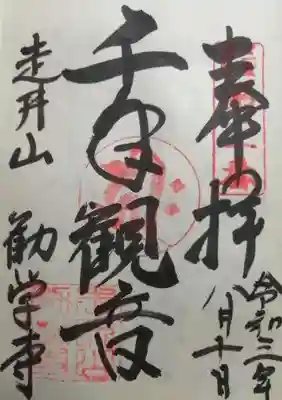 奉拝
令和三年
八月十日
千手観音
走井山
勧学寺